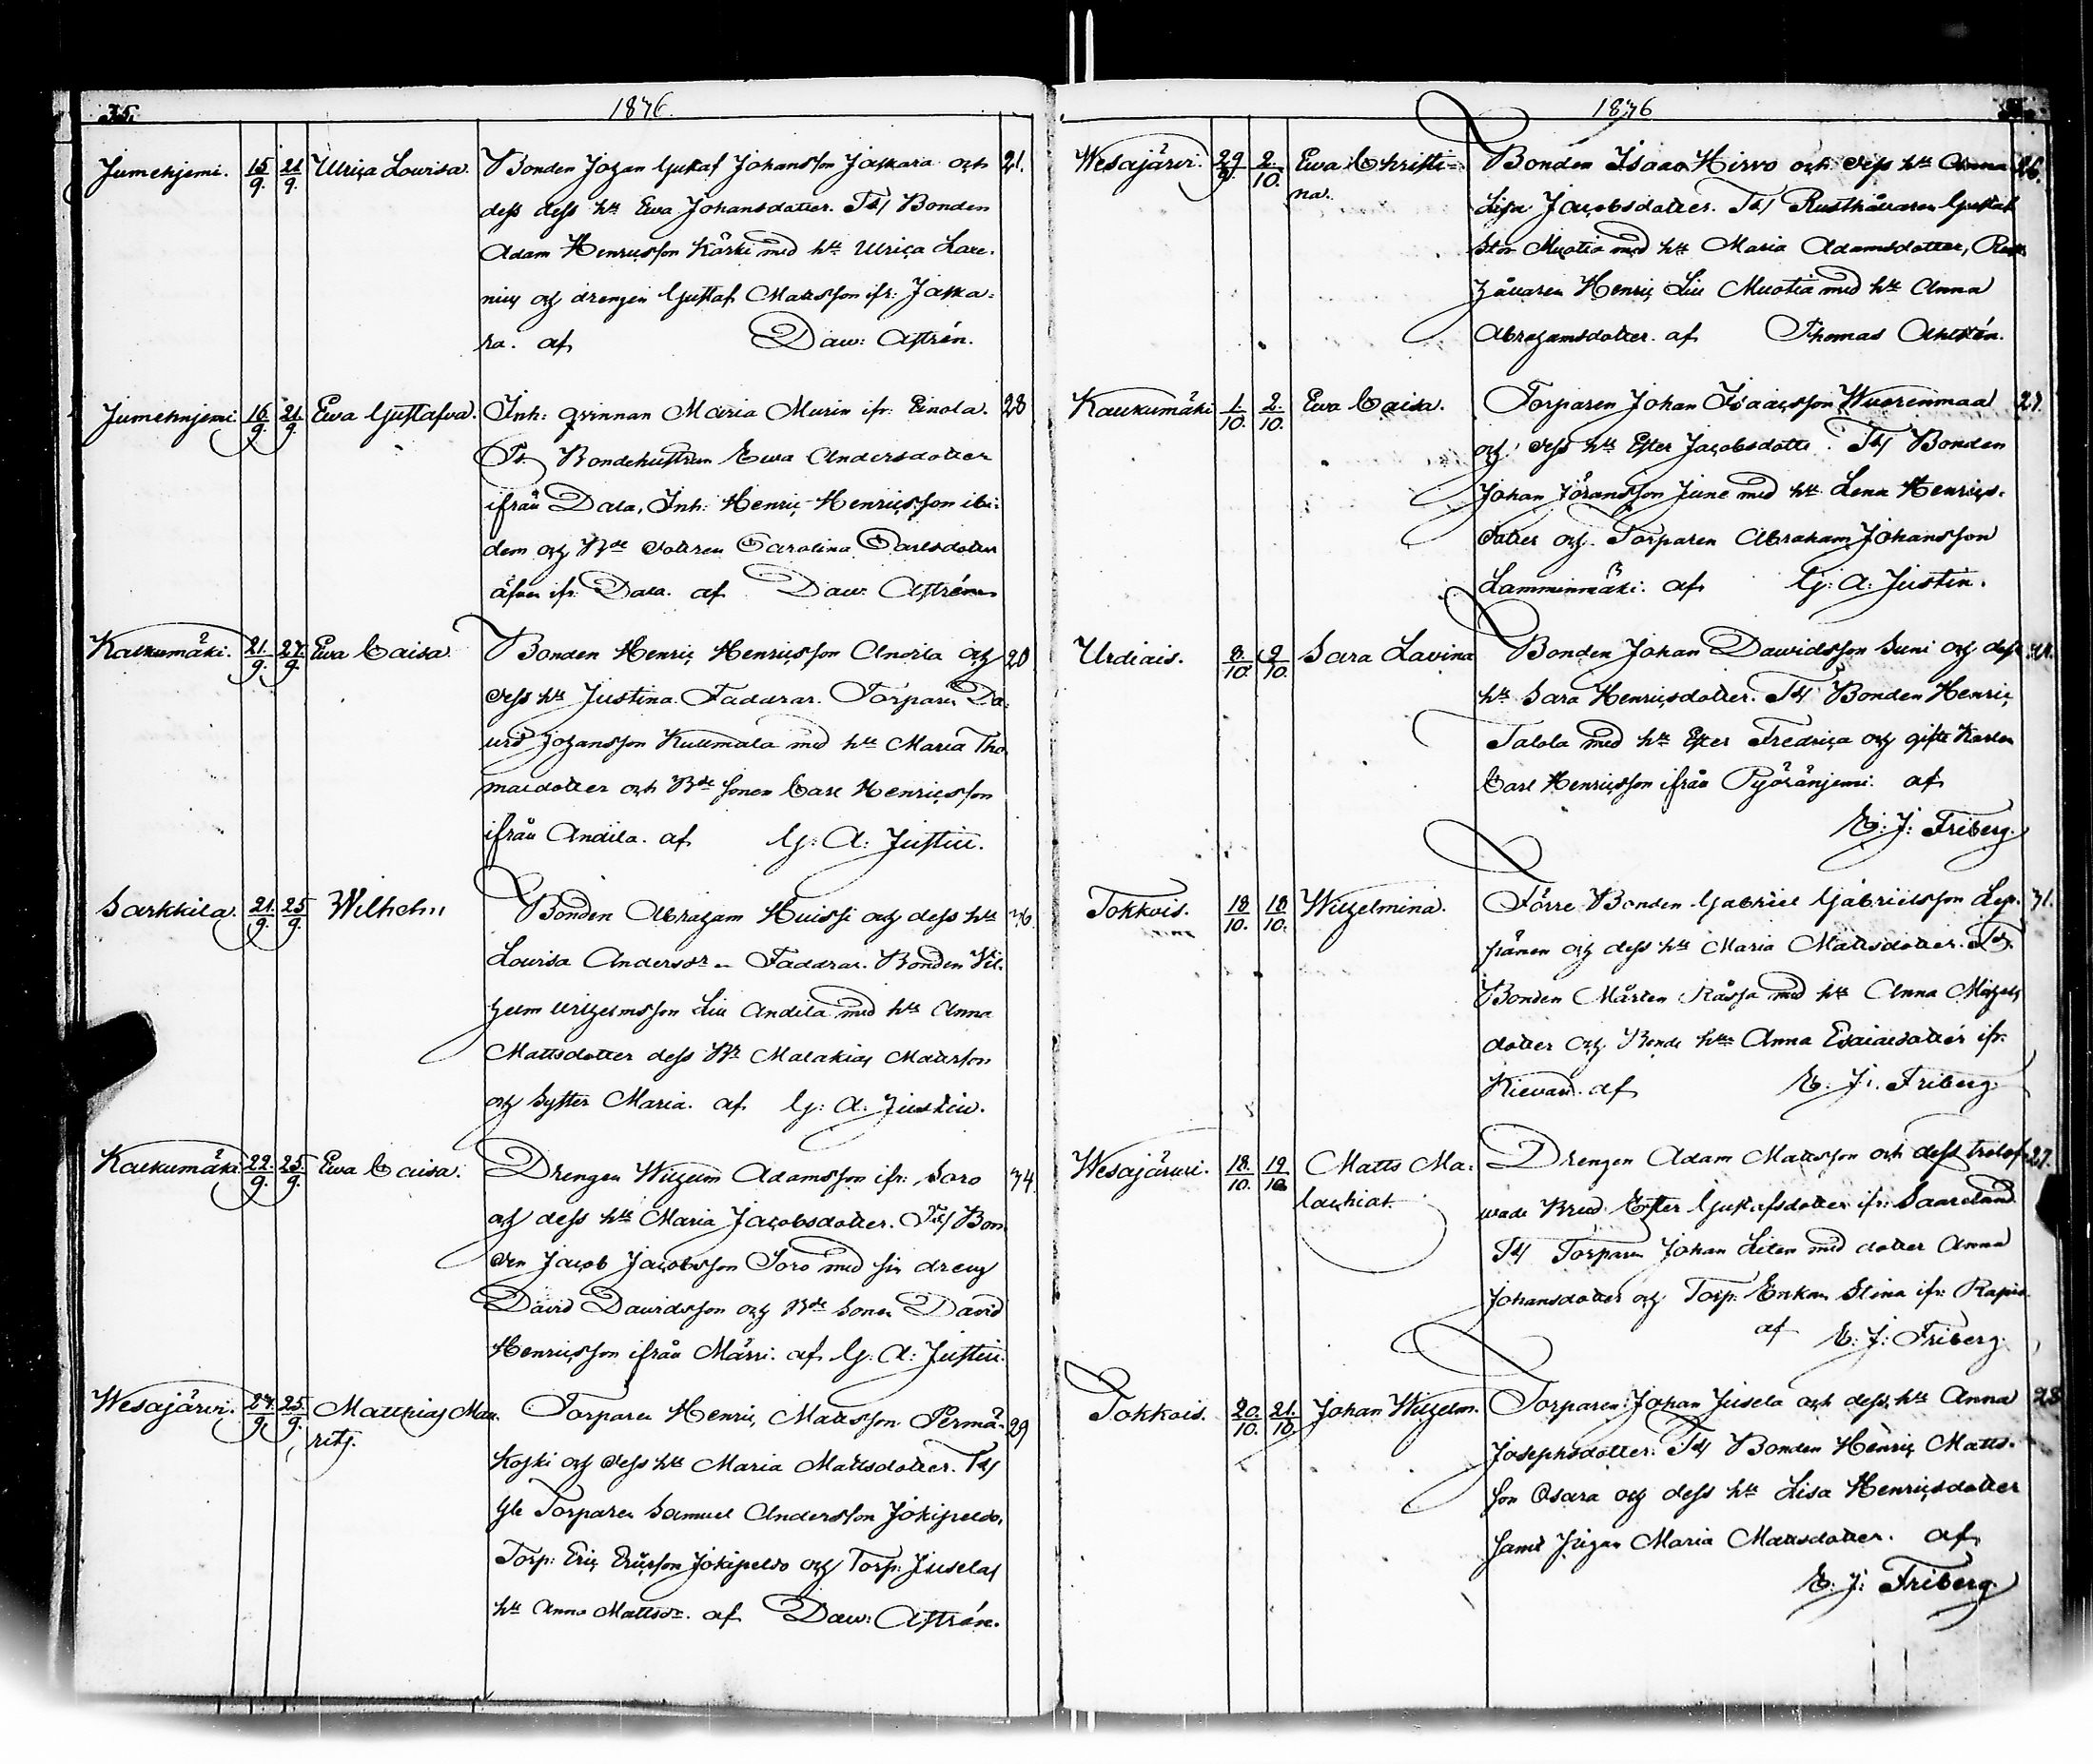 35.
1876.
Jumehjemi. 15/9. 21/9. Ulrica Lovisa. Bonden Johan Gustaf Johansson Jaskara och 21.
dess dess hu Ewa Johansdotter. Ts/ Bonden
Adam Henricsson Kärki med hu Ulrica Lare-
niq och drengen Gustaf Mattsson ifr: Jaska-
ra. af Daw: Astrén.
Jumehnjemi. 16/9. 21/9. Ewa Gustafva. Inh: qvinnan Maria Murin ifr: Einola. 28
Ts. Bondehustrun Ewa Andersdotter
ifrån Dala, Inh: Henric Henricsson ibi-
dem och Bde dottren Carolina Carlsdotter
äfven ifr: Dala. af Daw. Astrén
Kaukumäki. 21./9. 27./9. Ewa Caisa. Bonden Henric Henricsson Andila och 20
dess hu Justina. Faddrar. Torparen Da-
vid Johansson Kullmala med hu Maria Tho-
masdotter och Bde sonen Carl Henricsson
ifrån Andila. af G: A: Justin.
Sarkkila. 21./9. 25/9. Wilhelm Bonden Abraham Huissi och dess hu 36.
Lovisa Andersdr. Faddrar. Bonden Vil-
helm Wilhelmsson Liu Andila med hu Anna
Mattsdotter dess Br Malakias Mattsson
och Syster Maria. af G: A: Justin.
Kaukumäki. 22./9. 25./9. Ewa Caisa. Drengen Wilhelm Adamsson ifr: Soro 34.
och dess hu Maria Jacobsdotter. Ts/ Bon-
den Jacob Jacobsson Soro med sin dreng
David Davidsson och Bde Sonen David
Henricsson ifrån Märri. af G: A: Justin.
Wesajärvi. 24./9. 25./9. Matthias Mau- Torparen Henric Mattsson Permä- 29
ritz. koski och dess hu Maria Mattsdotter. Ts/
Gle Torparen Samuel Andersson Jokipeldo,
Torp: Eric Ericsson Jokipeldo och Torp: Juselas
hu Anna Mattsdr. af Daw: Astrén.
1876
Wesajärvi. 29/9. 2./10. Ewa Christi- Bonden Isaac Hirvo och dess hu Anna 26.
na. Lisa Jacobsdotter. Ts/ Rusthållaren Gustaf
Stor Muotia med hu Maria Adamsdotter, Rust-
hållaren Henric Liu Muotia med hu Anna
Abrahamsdotter. af Thomas Ahlstén.
Kaukumäki 1/10. 2/10. Ewa Caisa. Torparen Johan Isaacsson Wuorenmaa 27.
och dess hu Ester Jacobsdotte. Ts/ Bonden
Johan Jöransson June med hu Lena Henrics-
dotter och Torparen Abraham Johansson
Lamminmäki. af G: A: Justin.
Urdiais. 8./10. 9/10. Sara Lavina Bonden Johan Davidsson Suni och dess
hu Sara Henricsdotter. Ts/ Bonden Henric
Talola med hu Ester Fredrica och gifte Karlen
Carl Henricsson ifrån Pyöränjemi. af
E: J: Friberg.
Tokkois. 18/10. 18/10. Wilhelmina. Förre Bonden Gabriel Gabrielsson Lep- 31.
pänen och dess hu Maria Mattsdotter. Ts/
Bonden Mårten Rässa med hu Anna Michels
dotter och Bonde hu Anna Esaiaedotter ifr:
Kievari. af E. J. Friberg.
Wesajärvi. 18./10. 19/10. Matts Ma- Drengen Adam Mattsson och dess trolof- 27.
lachias. wade Brud Ester Gustafsdotter ifr: Saareland
Ts/ Torparen Johan Liten med dotter Anna
Johansdotter och Torp: Enkan Stina ifr:
af E: J: Friberg.
Tokkois. 20./10. 21./10. Johan Wilhelm. Torparen Johan Jusela och dess hu Anna 28
Josephsdotter. Ts/ Bonden Henric Matts-
son Osara och dess hu Lisa Henricsdotter
samt Pigan Maria Mattsdotter. af
E: J: Friberg.